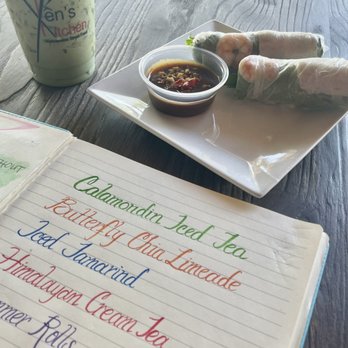 Yen's
Kitchen
Calamondin Iced Tea
Butterfly Chia Limeade
Iced Tamarind
Himalayan Cream Tea
mmer Rolls